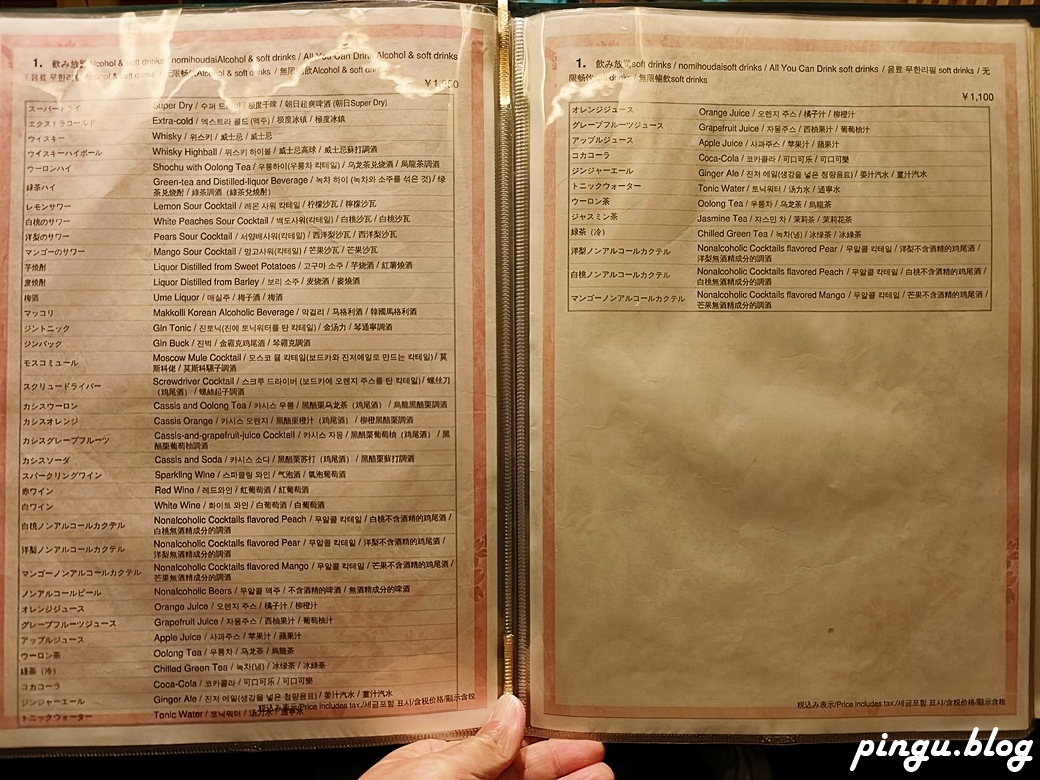 1. 飲み放題Alcohol & soft drinks / nomihoudaiAlcohol & soft drinks / All You Can Drink Alcohol & soft drinks
/ 음료 무한리필 Alcohol & soft drinks / 无限畅饮Alcohol & soft drinks / 無限暢飲Alcohol & soft drinks
スーパードライ Super Dry / 수퍼 드라이 / 极度干啤 / 朝日超爽啤酒 (朝日Super Dry)
エクストラコールド Extra-cold / 엑스트라 콜드 (맥주) / 极度冰镇 / 極度冰鎮
ウイスキー Whisky / 위스키 / 威士忌 / 威士忌
ウイスキーハイボール Whisky Highball / 위스키 하이볼 / 威士忌高球 / 威士忌蘇打調酒
ウーロンハイ Shochu with Oolong Tea / 우롱하이(우롱차 칵테일) / 乌龙茶兑烧酒 / 烏龍茶調酒
緑茶ハイ Green-tea and Distilled-liquor Beverage / 녹차 하이 (녹차와 소주를 섞은 것) / 绿
茶兑烧酎 / 綠茶調酒（綠茶兌燒酎）
レモンサワー Lemon Sour Cocktail / 레몬 사워 칵테일 / 柠檬沙瓦 / 檸檬沙瓦
白桃のサワー White Peaches Sour Cocktail / 백도사워(칵테일) / 白桃沙瓦 / 白桃沙瓦
洋梨のサワー Pears Sour Cocktail / 서양배사워(칵테일) / 西洋梨沙瓦 / 西洋梨沙瓦
マンゴーのサワー Mango Sour Cocktail / 망고사워(칵테일) / 芒果沙瓦 / 芒果沙瓦
芋焼酎 Liquor Distilled from Sweet Potatoes / 고구마 소주 / 芋烧酒 / 紅薯燒酒
麦焼酎 Liquor Distilled from Barley / 보리 소주 / 麦烧酒 / 麥燒酒
梅酒 Ume Liquor / 매실주 / 梅子酒 / 梅酒
マッコリ Makkolli Korean Alcoholic Beverage / 막걸리 / 马格利酒 / 韓國馬格利酒
ジントニック Gin Tonic / 진토닉(진에 토닉워터를 탄 칵테일) / 金汤力 / 琴通寧調酒
ジンバック Gin Buck / 진벅 / 金霸克鸡尾酒 / 琴霸克調酒
モスコミュール Moscow Mule Cocktail / 모스코 뮬 칵테일(보드카와 진저에일로 만드는 칵테일) / 莫
斯科佬 / 莫斯科騾子調酒
スクリュードライバー Screwdriver Cocktail / 스크루 드라이버 (보드카에 오렌지 주스를 탄 칵테일) / 螺丝刀
（鸡尾酒）/ 螺絲起子調酒
カシスウーロン Cassis and Oolong Tea / 카시스 우롱 / 黑醋栗乌龙茶（鸡尾酒） / 烏龍黑醋栗調酒
カシスオレンジ Cassis Orange / 카시스 오렌지 / 黑醋栗橙汁（鸡尾酒） / 柳橙黑醋栗調酒
カシスグレープフルーツ Cassis-and-grapefruit-juice Cocktail / 카시스 자몽 / 黑醋栗葡萄柚（鸡尾酒） / 黑
醋栗葡萄柚調酒
カシスソーダ Cassis and Soda / 카시스 소다 / 黑醋栗苏打（鸡尾酒） / 黑醋栗蘇打調酒
スパークリングワイン Sparkling Wine / 스파클링 와인 / 气泡酒 / 氣泡葡萄酒
赤ワイン Red Wine / 레드와인 / 红葡萄酒 / 紅葡萄酒
白ワイン White Wine / 화이트 와인 / 白葡萄酒 / 白葡萄酒
白桃ノンアルコールカクテル Nonalcoholic Cocktails flavored Peach / 무알콜 칵테일 / 白桃不含酒精的鸡尾酒 /
白桃無酒精成分的調酒
洋梨ノンアルコールカクテル Nonalcoholic Cocktails flavored Pear / 무알콜 칵테일 / 洋梨不含酒精的鸡尾酒 /
洋梨無酒精成分的調酒
マンゴーノンアルコールカクテル Nonalcoholic Cocktails flavored Mango / 무알콜 칵테일 / 芒果不含酒精的鸡尾酒 /
芒果無酒精成分的調酒
ノンアルコールビール Nonalcoholic Beers / 무알콜 맥주 / 不含酒精的啤酒 / 無酒精成分的啤酒
オレンジジュース Orange Juice / 오렌지 주스 / 橘子汁 / 柳橙汁
グレープフルーツジュース Grapefruit Juice / 자몽주스 / 西柚果汁 / 葡萄柚汁
アップルジュース Apple Juice / 사과주스 / 苹果汁 / 蘋果汁
ウーロン茶 Oolong Tea / 우롱차 / 乌龙茶 / 烏龍茶
緑茶（冷） Chilled Green Tea / 녹차(냉) / 冰绿茶 / 冰綠茶
コカコーラ Coca-Cola / 코카콜라 / 可口可乐 / 可口可樂
ジンジャーエール Ginger Ale / 진저 에일(생강을 넣은 청량음료) / 姜汁汽水 / 薑汁汽水
トニックウォーター Tonic Water / 토닉워터 / 汤力水 / 通寧水
税込み表示/Price includes tax./세금포함 표시/含税价格/顯示含稅
1. 飲み放題soft drinks / nomihoudaisoft drinks / All You Can Drink soft drinks / 음료 무한리필 soft drinks / 无
限畅饮soft drinks / 無限暢飲soft drinks
￥1,100
オレンジジュース Orange Juice / 오렌지 주스 / 橘子汁 / 柳橙汁
グレープフルーツジュース Grapefruit Juice / 자몽주스 / 西柚果汁 / 葡萄柚汁
アップルジュース Apple Juice / 사과주스 / 苹果汁 / 蘋果汁
コカコーラ Coca-Cola / 코카콜라 / 可口可乐 / 可口可樂
ジンジャーエール Ginger Ale / 진저 에일(생강을 넣은 청량음료) / 姜汁汽水 / 薑汁汽水
トニックウォーター Tonic Water / 토닉워터 / 汤力水 / 通寧水
ウーロン茶 Oolong Tea / 우롱차 / 乌龙茶 / 烏龍茶
ジャスミン茶 Jasmine Tea / 자스민 차 / 茉莉茶 / 茉莉花茶
緑茶（冷） Chilled Green Tea / 녹차(냉) / 冰绿茶 / 冰綠茶
洋梨ノンアルコールカクテル Nonalcoholic Cocktails flavored Pear / 무알콜 칵테일 / 洋梨不含酒精的鸡尾酒 /
洋梨無酒精成分的調酒
白桃ノンアルコールカクテル Nonalcoholic Cocktails flavored Peach / 무알콜 칵테일 / 白桃不含酒精的鸡尾酒 /
白桃無酒精成分的調酒
マンゴーノンアルコールカクテル Nonalcoholic Cocktails flavored Mango / 무알콜 칵테일 / 芒果不含酒精的鸡尾酒 /
芒果無酒精成分的調酒
税込み表示/Price includes tax./세금포함 표시/含税价格/顯示含稅
pingu.blog